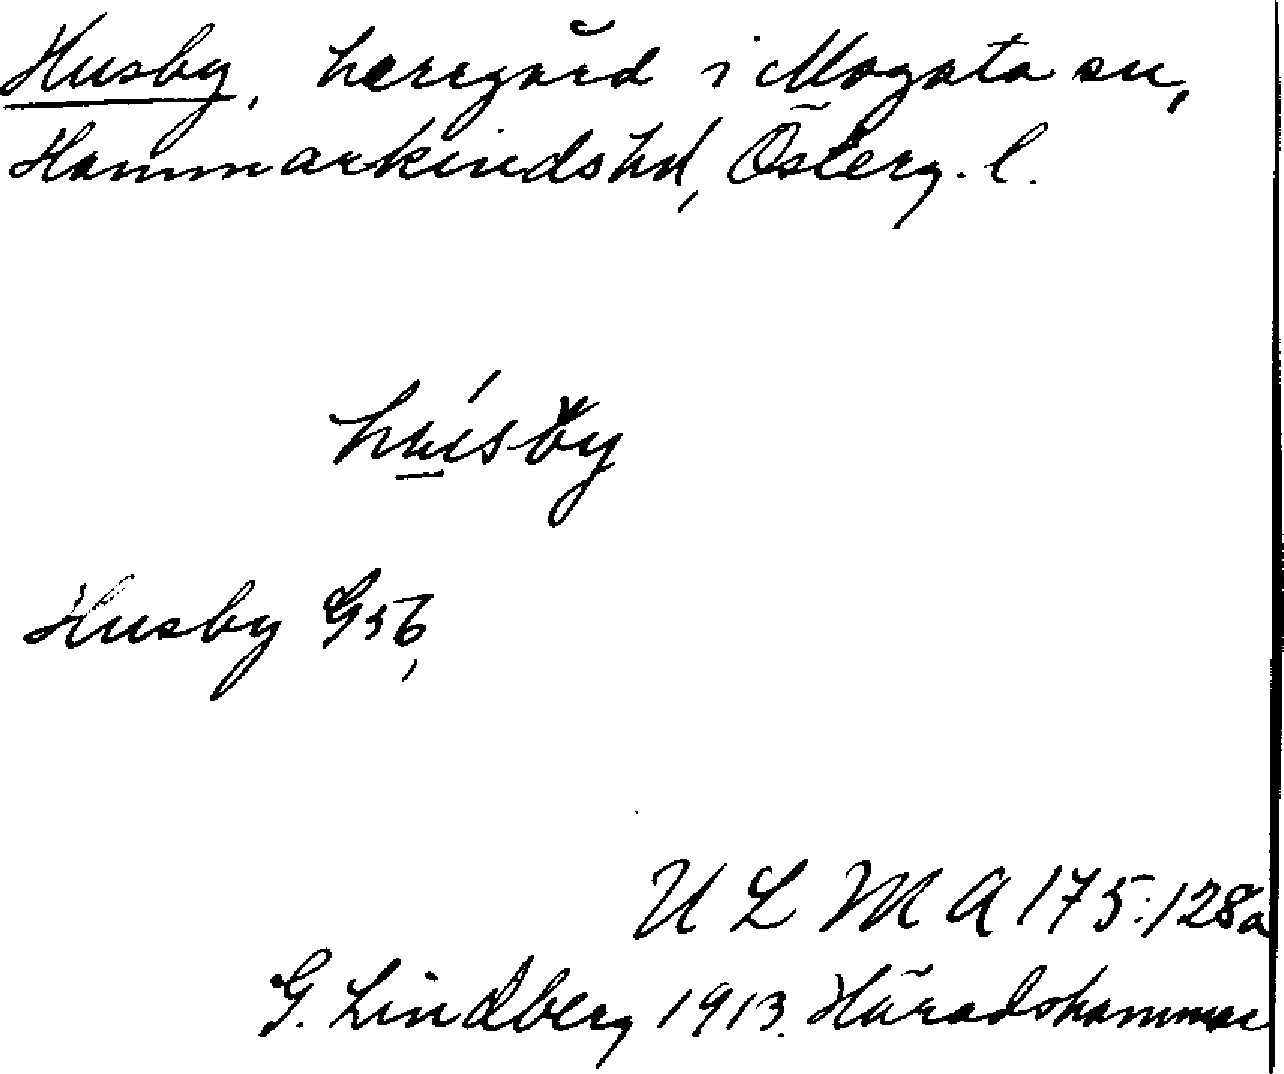 Husby, herrgård i Mogata sn,
Hammarkinds hd, Österg. l.
húsby
Husby G 56,
U L M A 175:128a
G. Lindberg 1913. Häradshammar